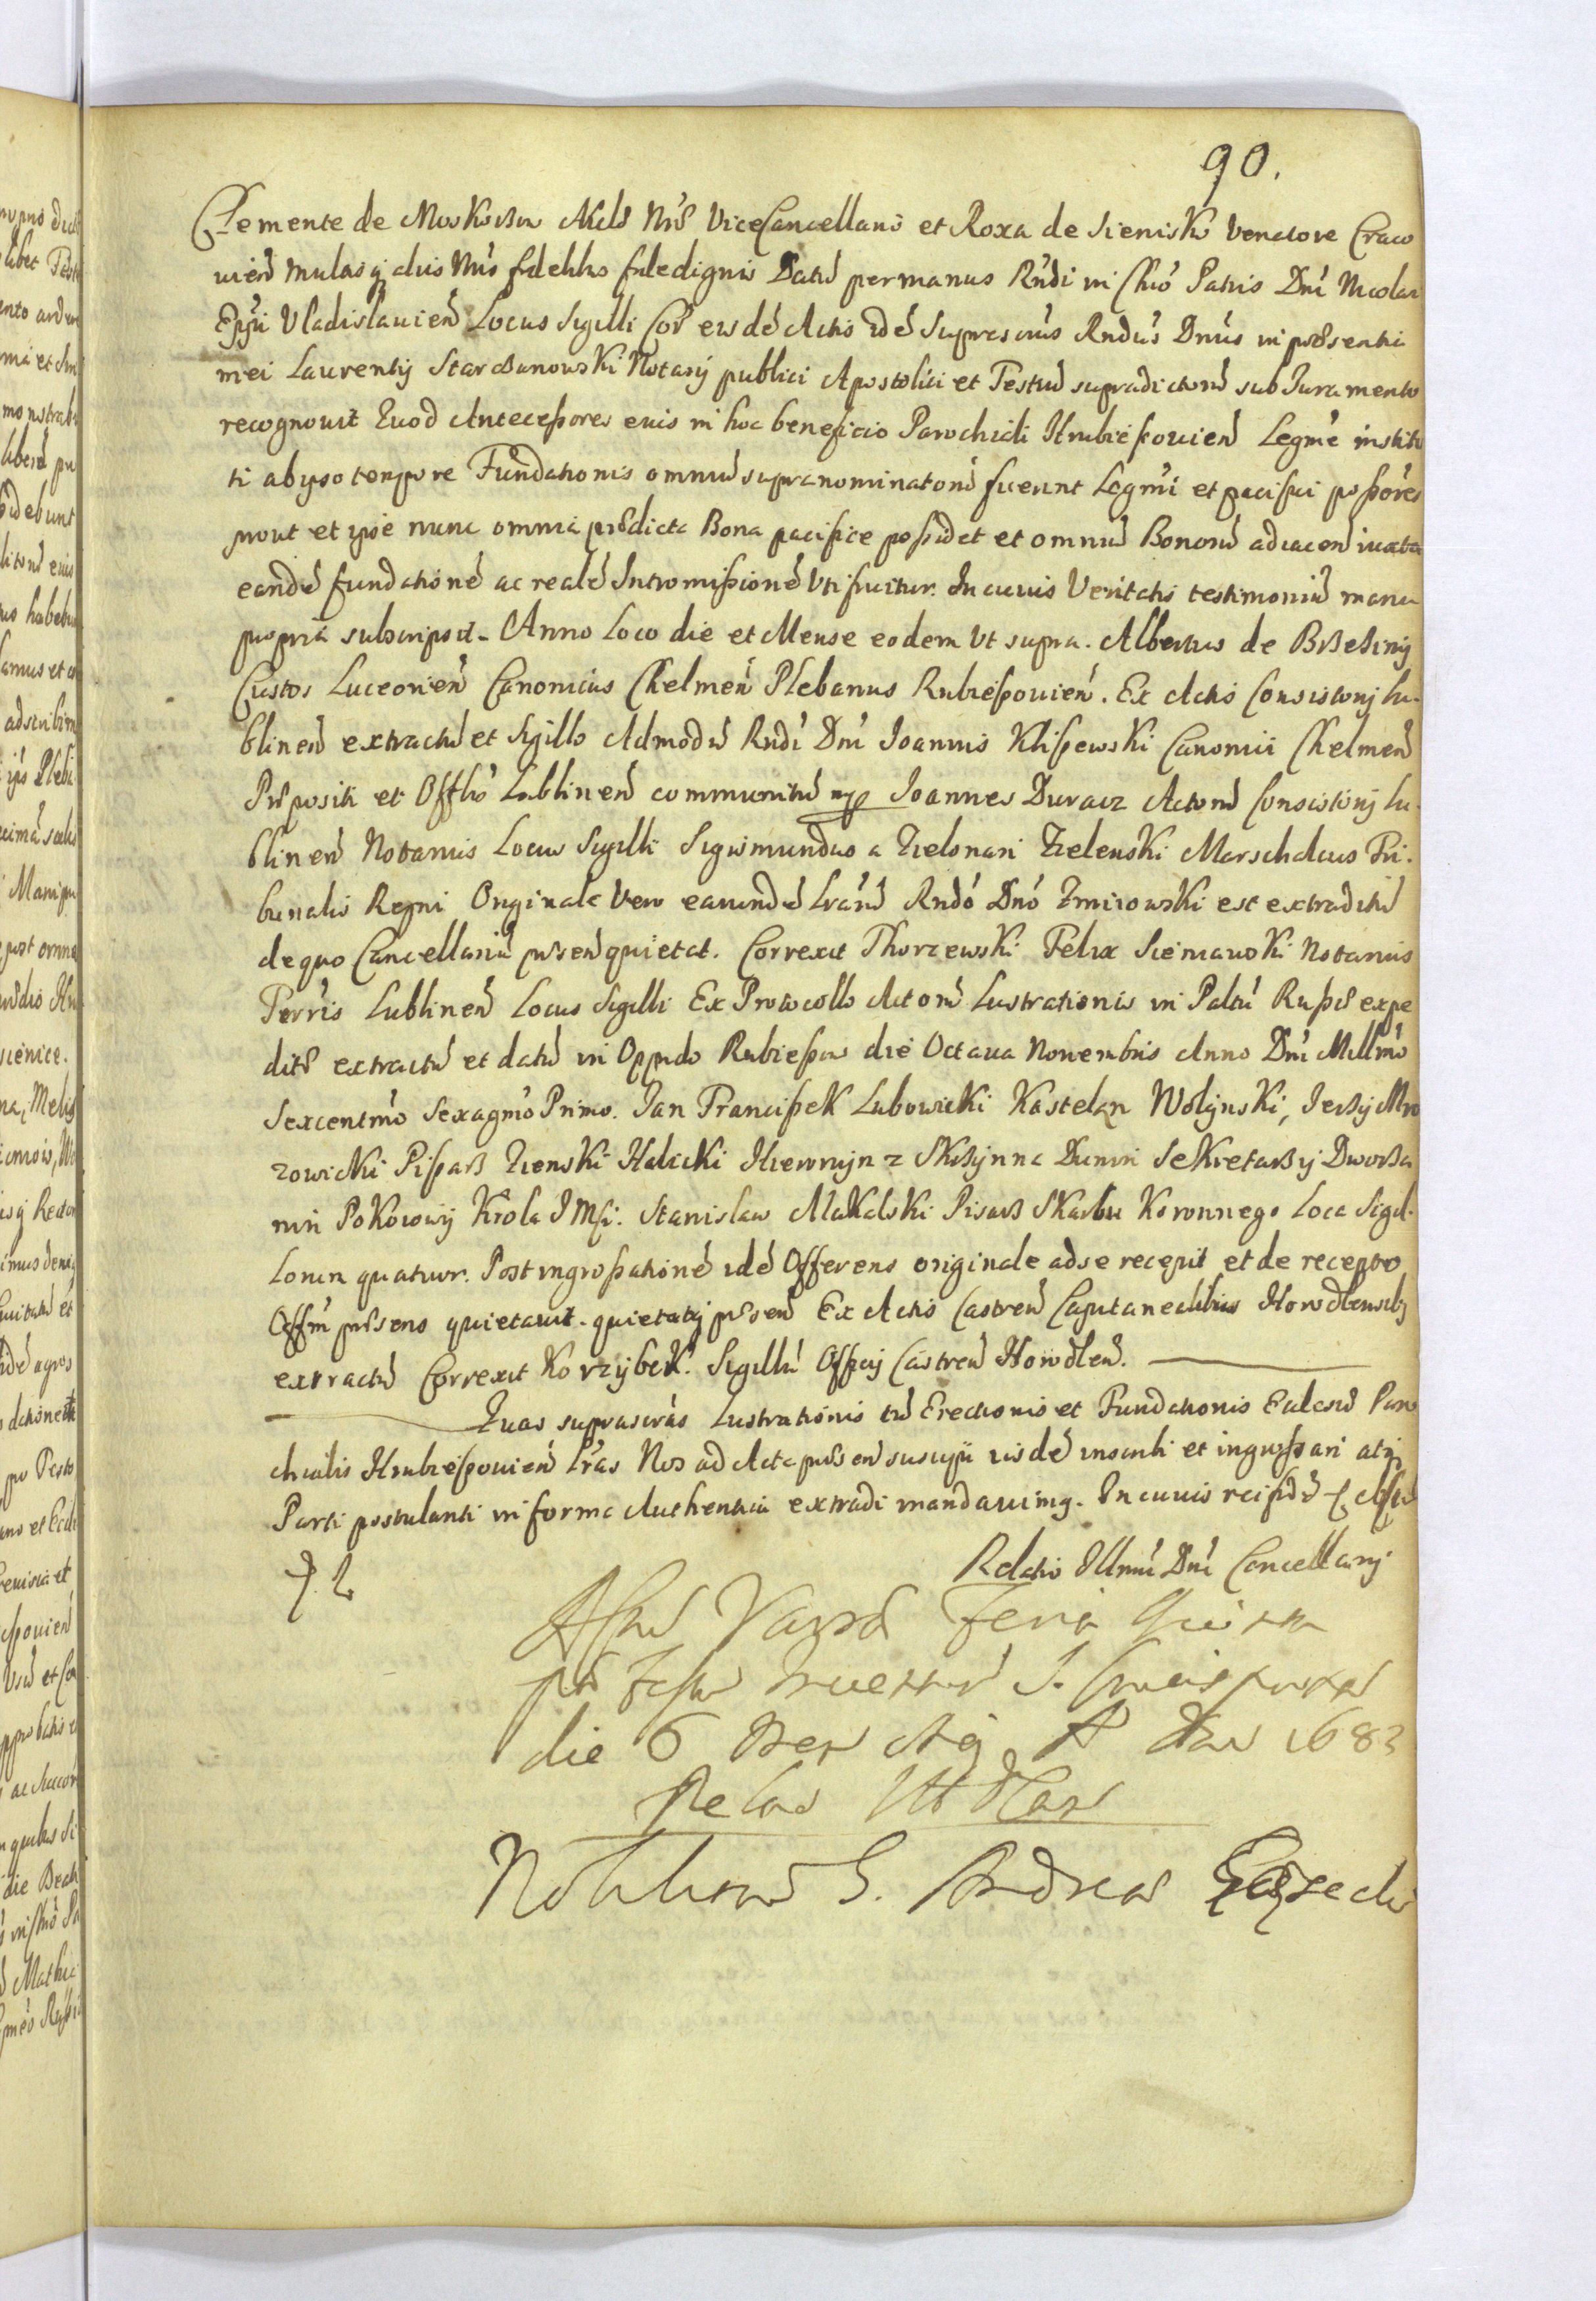 90.
Clemente de Moskorzow Aulae Nrae ViceCancellario et Roxa de Sienisko Venatore Craco
vien multisq alijs Nris fidelibs fidedignis Datu per manus Rndi in Chro Patris Dni Nicolai
Eppi Vladislavien Locus Sigilli Cor eisde Actis ide Suprascrius Rndus Dnus in praesentia
mei Laurentij Starczanowski Notarij publici Apostolici et Testiu supradictoru sub Juramento
recognovit Quod Antecessores euis in hoc beneficio Parochiali Hrubieszovien Legme institu
ti ab ipso tempore Fundationis omniu supranominatoru fuerunt Legmi et pacifici possores
prout et ipse nunc omnia praedicta Bona pacifice possidet et omniu Bonoru adiacen iuxta
eande fundatione ac reale Intromissione Uti fruitur. In cuius Veritatis testimoniu manu
propria subscripsit. Anno Loco die et Mense eodem Ut supra. Albertus de Brzeziny
Custos Luceorien Canonicus Chelmen Plebanus Rubieszovien. Ex Actis Consistorij Lu
blinen extractu et Sigillo Admodu Rndi Dni Joannis Kliszewski Canonici Chelmen
Praepositi et Offlis Lublinen communitu mp Joannes Duracz Actoru Consistorij Lu
blinen Notarius Locus Sigilli Sigismundus a Zielonari Zielenski Marschalcus Tri
bunalis Regni Originale Vero earunde Lraru Rndo Dno Zmirowski est extraditu
de quo Cancellariu praesen quietat. Correxit Thorzewski Felix Sieniawski Notarius
Terris Lublinen Locus Sigilli Ex Protocollo Actoru Lustrationis in Paltu Russiae expe
ditae extractu et datu in Oppido Rubieszow die Octava Novembris Anno Dni Millmo
Sexcentmo Sexagmo Primo. Jan Franciszek Lubowicki Kasztelan Wolynski, Jerzy Mro
zowicki Pisarz Ziemski Halicki Hieronym z Skrzynna Dunin Sekretarz y Dworza
nin Pokoiowy Krola JMsi. Stanislaw Makalski Pisarz Skarbu Koronnego Loca Sigil
lorum quatuor. Post ingrossatione ide Offerens originale ad se recepit et de recepto
Offm praesens quietavit. quietatq praesen Ex Actis Castren Capitanealibus Horodlensibs
extractu Correxit Korzybek. Sigillu Offcij Castren Horodlen.
Quas suprascrias Lustrationis tu Erectionis et Fundationis Ecclesiae Paro
chialis Hrubieszovien Lras Nos ad Acta praesen suscipi iisde inscribi et ingrossari atq
Parti postulanti in forma Authentica extradi mandavimq. In cuius rei fide
Relatio Illmi Dni Cancellarij
Feria Quinta
die 6 1683
Andreas